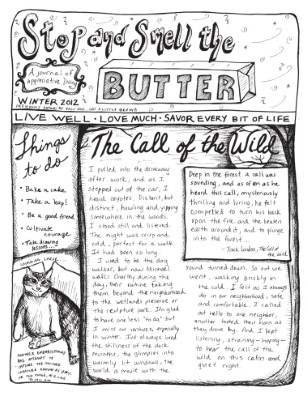 Stop and Smell the
BUTTER
A journal of
appreciative living
WINTER 2012
LIVE WELL • LOVE MUCH • SAVOR EVERY BIT OF LIFE
Things
to do
• Bake a cake
• Take a bow!
• Be a good friend
• Cultivate
courage
• Take drawing
lessons...*
The Call of the Wild
I pulled into the driveway
after work, and as I
stepped out of the car, I
heard coyotes. Distant, but
distinct, howling and yipping
somewhere in the woods.
I stood still and listened.
The night was crisp and
cold, perfect for a walk.
It had been so long.
I used to be the dog
walker, but now Michael
walks Charley during the
day, their routine taking
them beyond the neighborhood
to the wetlands preserve or
the sculpture park. I'm glad
to have one less "to do," but
I miss our venture, especially
in winter. I've always loved
the stillness of the dark
months, the glimpses into
warmly lit windows, the
world a movie with the
Deep in the forest a call was
sounding, and as often as he
heard this call, mysteriously
thrilling and luring, he felt
compelled to turn his back
upon the fire and the beaten
earth around it, and to plunge
into the forest...
Jack London, The Call of the
Wild
sound turned down. So out we
went, walking quickly in
the cold. I felt as I always
do in our neighborhood, safe
and comfortable. I called
out hello to one neighbor,
another honked their horn as
they drove by. And I kept
listening, straining, hoping—
to hear the call of the
wild, on this calm and
quiet night.